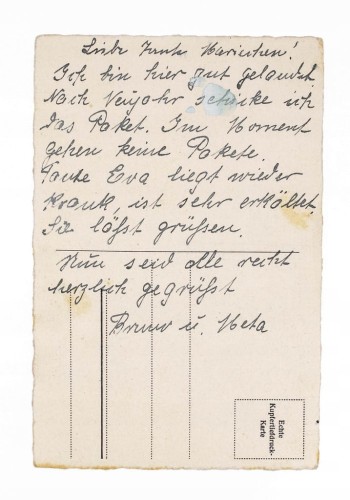 Liebe Tante Marichen!
Ich bin hier gut gelandet.
Nach Neujahr schicke ich
das Paket. Im Moment
gehen keine Pakete.
Tante Eva liegt wieder
krank, ist sehr erkältet.
Sie läßst grüssen.
Nun seid alle recht
herzlich gegrüßt
Bruno u. Meta
Echte
Kupfertiefdruck-
Karte